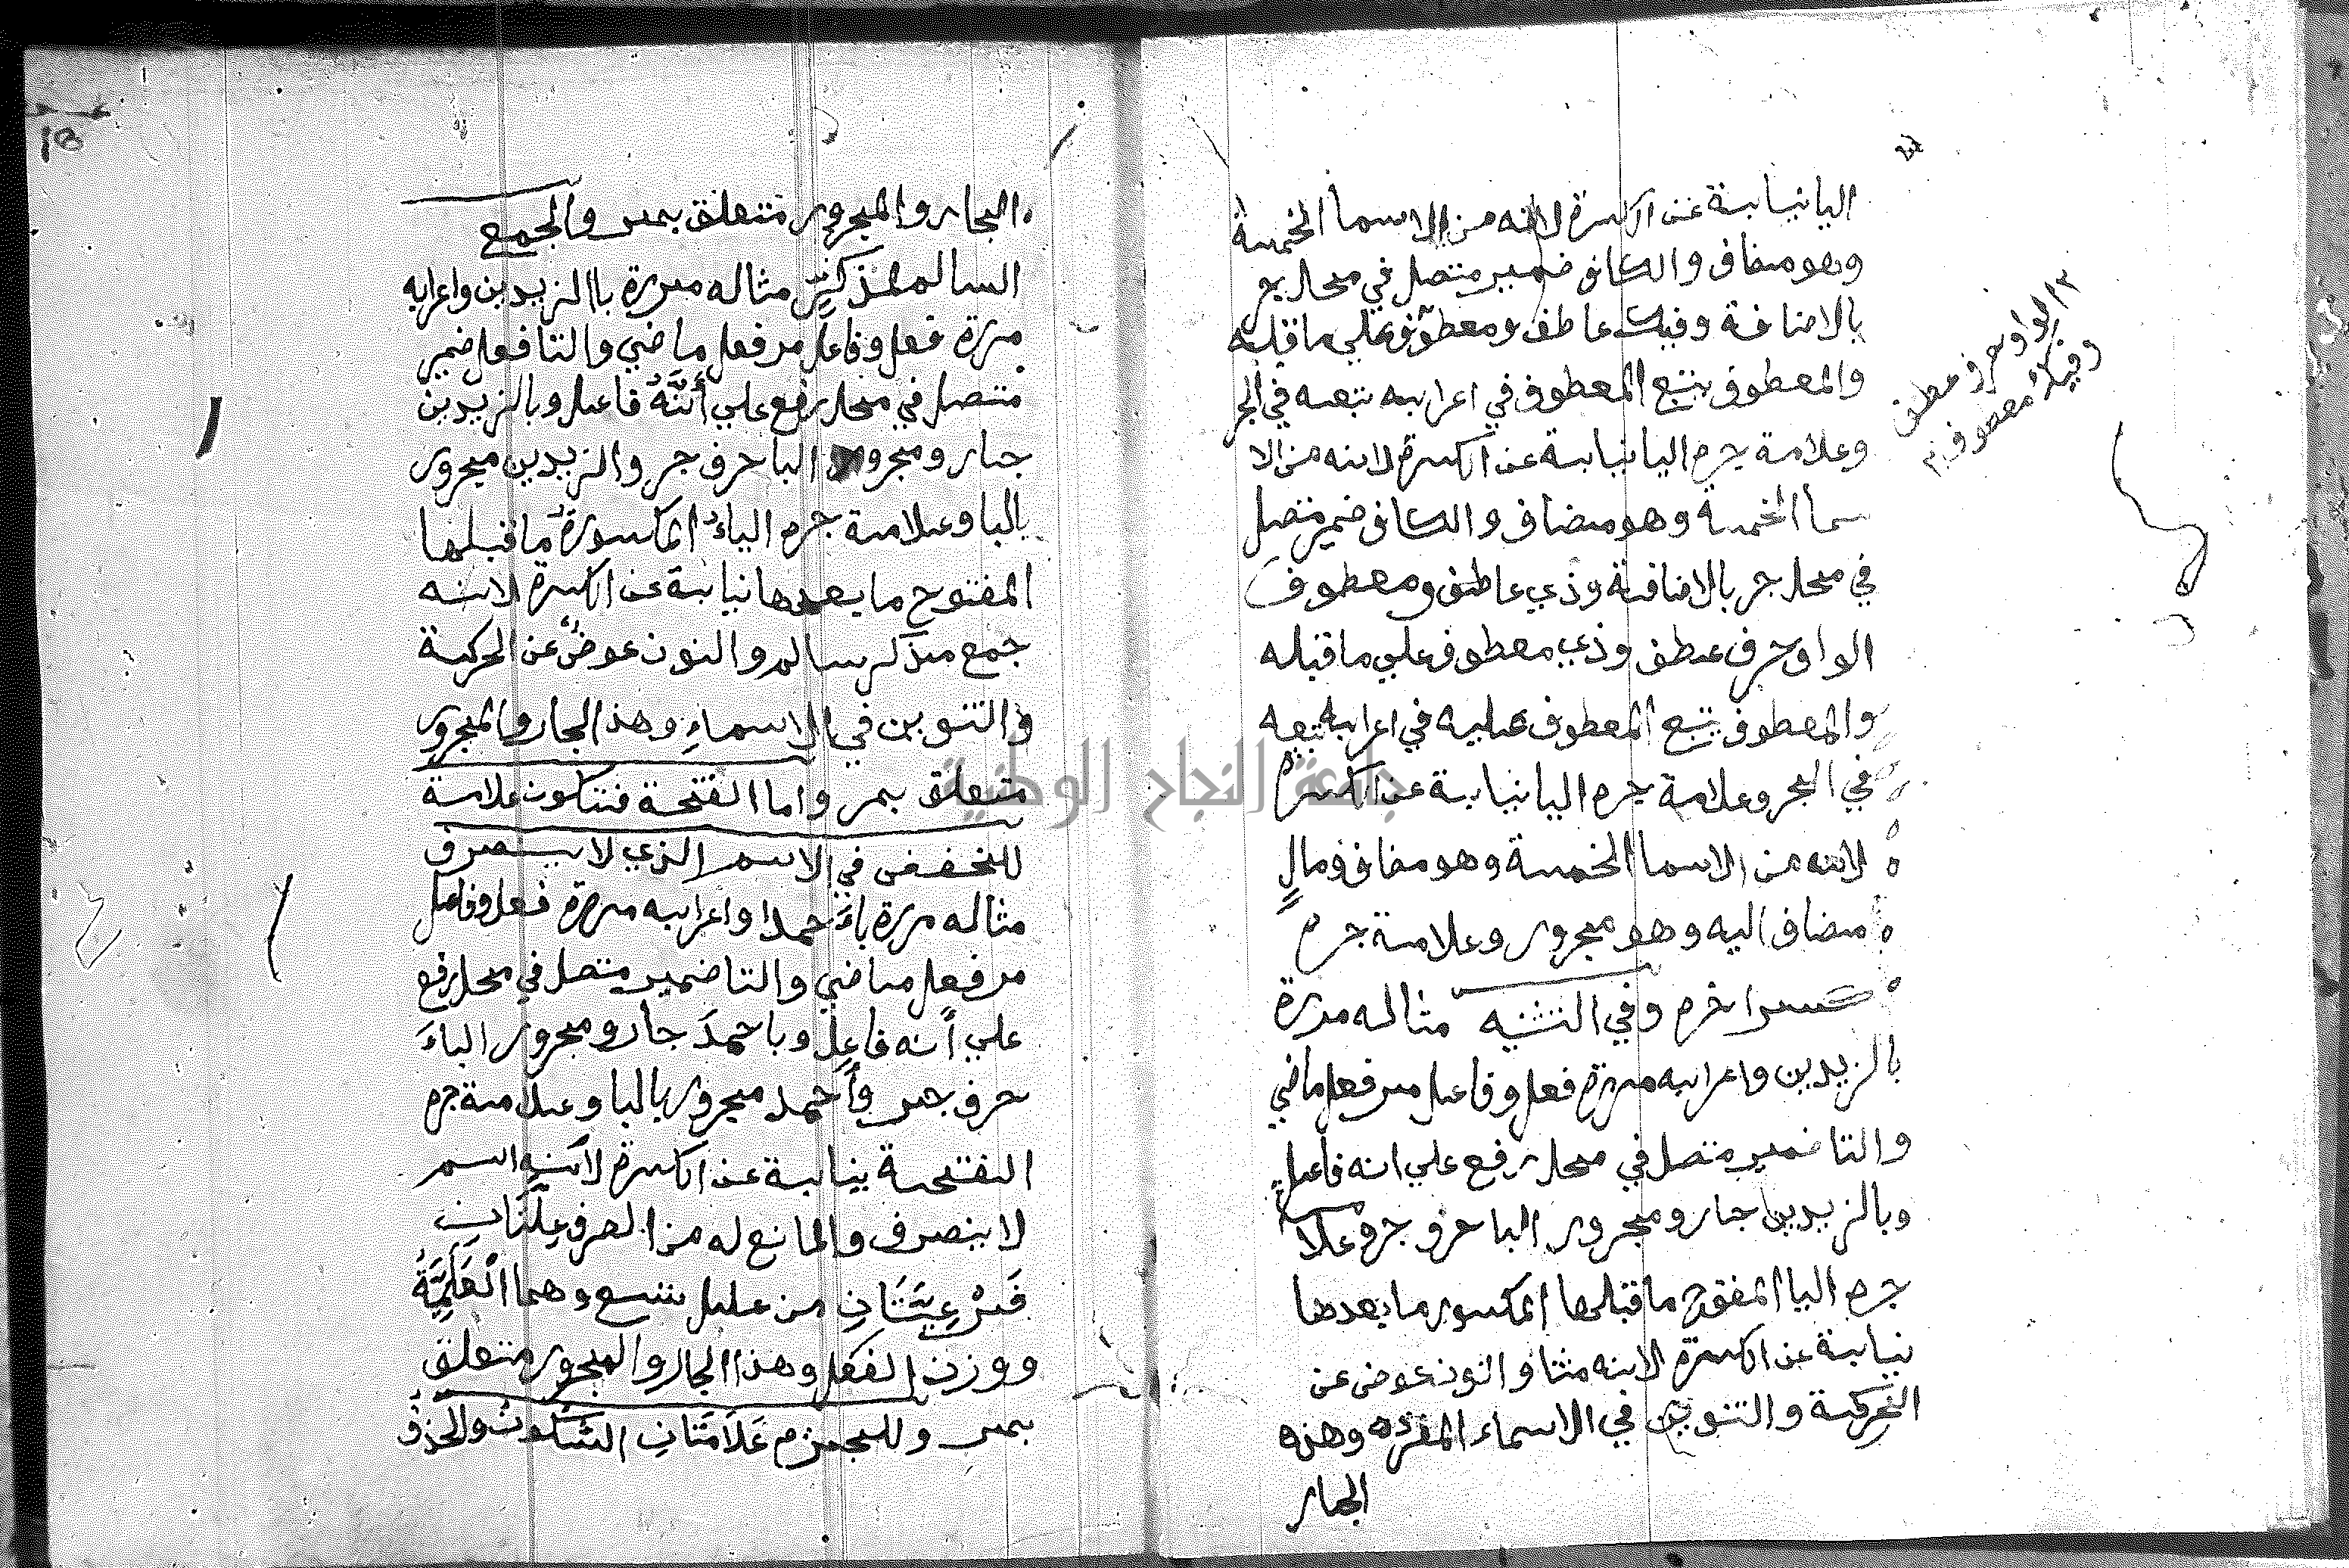 اليا نيابة عن الكسرة لانه من الاسما الخمسة
وهو مضاف والكاف ضمير متصل في محل جر
بالاضافة وفيك عاطف ومعطوف علي ما قبله
والمعطوف يتبع المعطوف في اعرابه تبعه في الجر
وعلامة جره اليا نيابة عن الكسرة لانه من الا
سما الخمسة وهو مضاف والكاف ضمير متصل
في محل جر بالاضافة وذي عاطف ومعطوف
الواو حرف عطف وذي معطوف علي ما قبله
والمعطوف يتبع المعطوف عليه في اعرابه تبعه
في الجر وعلامة جره اليا نيابة عن الكسرة
لانه من الاسما الخمسة وهو مضاف ومالٍ
مضاف اليه وهو مجرور وعلامة جره
كسر اخره وفي التثنيه مثاله مررة
بالزيدين واعرابه مررة فعل وفاعل مر فعل ماضي
والتا ضمير متصل في محل رفع علي انه فاعل
وبالزيدين جار ومجرور البا حرف جر وعلا
جره اليا المفتوح ما قبلها المكسور ما بعدها
نيابة عن الكسرة لانه مثنا والنون عوض عن
الحركة والتنوين في الاسماء المفرده وهذه
الجار
الواو حرف عطف
وفيك معطوف
الجار والمجرور متعلق بمر والجمع
السالم المذكر مثاله مررة باالزيدين واعرابه
مررة فعل وفاعل مر فعل ماضي والتا فعل ضمير
متصل في محل رفع علي أنَّهُ فاعل وبالزيدين
جار ومجرور البا حرف جر والزيدين مجرور
بالبا وعلامة جره الياء المكسورة ما قبلها
المفتوح ما بعدها نيابة عن الكسرة لانه
جمع مذكر سالم والنون عوضٌ عن الحركة
والتنوين في الاسماءِ وهذا الجار والمجرور
متعلق بمر واما الفتحة فتكون علامة
للخفض في الاسم الذي لا ينصرف
مثاله مررة باَحمدا واعرابه مررة فعل وفاعل
مر فعل ماضي والتا ضمير متصل في محل رفع
علي أنه فاعِل وباحمدَ جار ومجرور الباءَ
حرف جر وأحمد مجرور بالبا وعلامة جره
الفتحة نيابة عن الكسرة لأنه اسم
لا ينصرف والمانع له من الصرف عِلَّتَانِ
فَرْعِيَّتَانِ من علل تسع وهما الْعَلَمِيَّةُ
ووزن الفعل وهذا الجار والمجرور متعلق
بمر وللجزم عَلَامَتَانِ السُّكُونُ والحذفُ